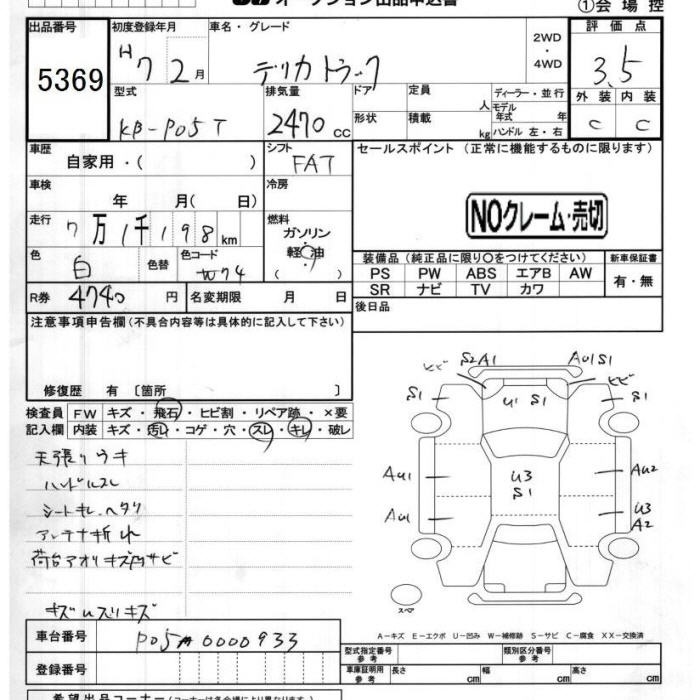 オークション出品申込書
①会場控
出品番号
5369
初度登録年月
H7 2月
車名・グレード
デリカトラック
2WD
・
4WD
評価点
3.5
外装 内装
C C
型式
KB-P05T
排気量
2470cc
ドア
形状
定員
人
積載
kg
ディーラー・並行
モデル年式 年
ハンドル 左・右
車歴
自家用・( )
シフト
FAT
セールスポイント (正常に機能するものに限ります)
NOクレーム・売切
車検
年 月( 日)
冷房
走行
7万1千198km
燃料
ガソリン
軽油
色
白
色替
色コード
W74
装備品 (純正品に限り〇をつけてください)
PS PW ABS エアB AW
SR ナビ TV カワ
新車保証書
有・無
R券
4740円
名変期限 月 日
後日品
注意事項申告欄 (不具合内容等は具体的に記入して下さい)
修復歴 有 〔箇所 〕
検査員 FW キズ・飛石・ヒビ割・リペア跡・×要
記入欄 内装 キズ・汚レ・コゲ・穴・スレ・キレ・破レ
天張りウキ
ハンドルスレ
シートキレ・ヘタリ
アンテナ折れ
荷台アオリキズ凹サビ
ヒビ S2A1 AU1S1 ヒビ
S1 U1 S1 S1
AU1 U3 S1 AU2
AU1 U3 A2
スペア
A-キズ E-エクボ U-凹み W-補修跡 S-サビ C-腐食 XX-交換済
車台番号
登録番号
型式指定番号
参考
類別区分番号
参考
車庫証明用
参考
長さ cm
幅 cm
高さ cm
希望出品コーナー